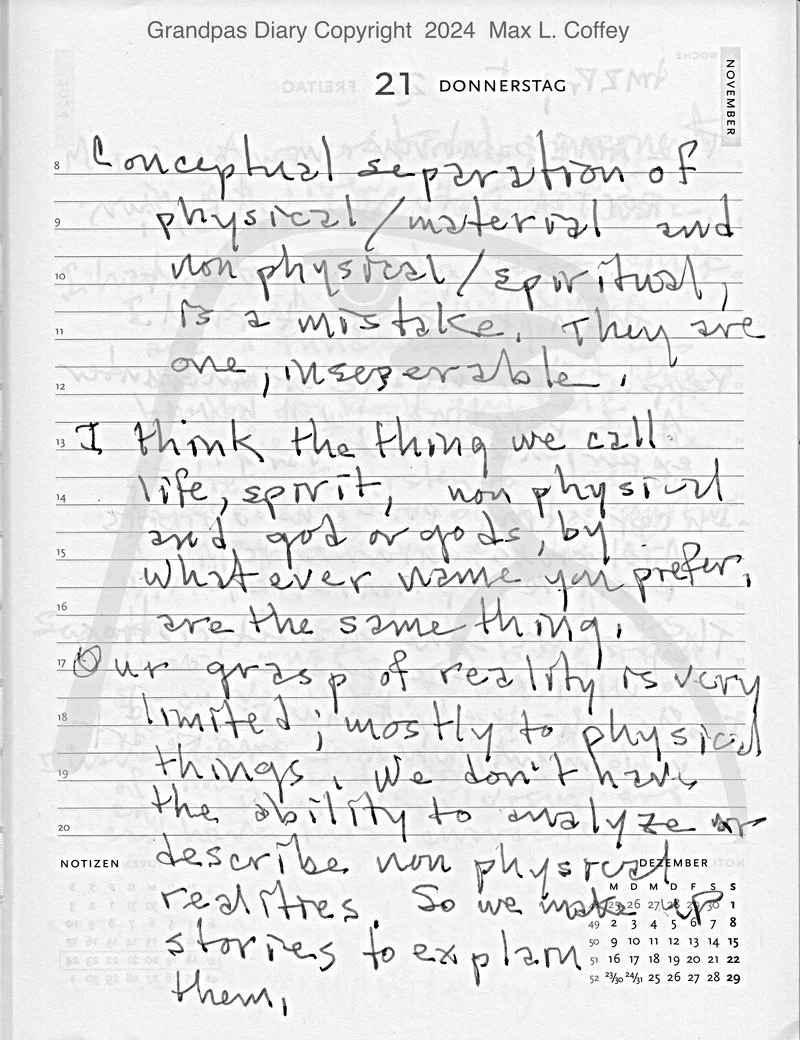 Grandpas Diary Copyright 2024 Max L. Coffey
WOCHE
FREITAG
21 DONNERSTAG
NOVEMBER
8 Conceptual separation of
9 physical/material and
10 non physical/spiritual,
11 is a mistake. They are
12 one, inseperable.
13 I think the thing we call
14 life, spirit, non physical
15 and god or gods, by
whatever name you prefer,
16 are the same thing.
17 Our grasp of reality is very
18 limited; mostly to physical
19 things. We don't have
20 the ability to analyze or
NOTIZEN describe non physical DEZEMBER
realities. So we make up
stories to explain
them.
M D M D F S S
48 25 26 27 28 29 30 1
49 2 3 4 5 6 7 8
50 9 10 11 12 13 14 15
51 16 17 18 19 20 21 22
52 23/30 24/31 25 26 27 28 29